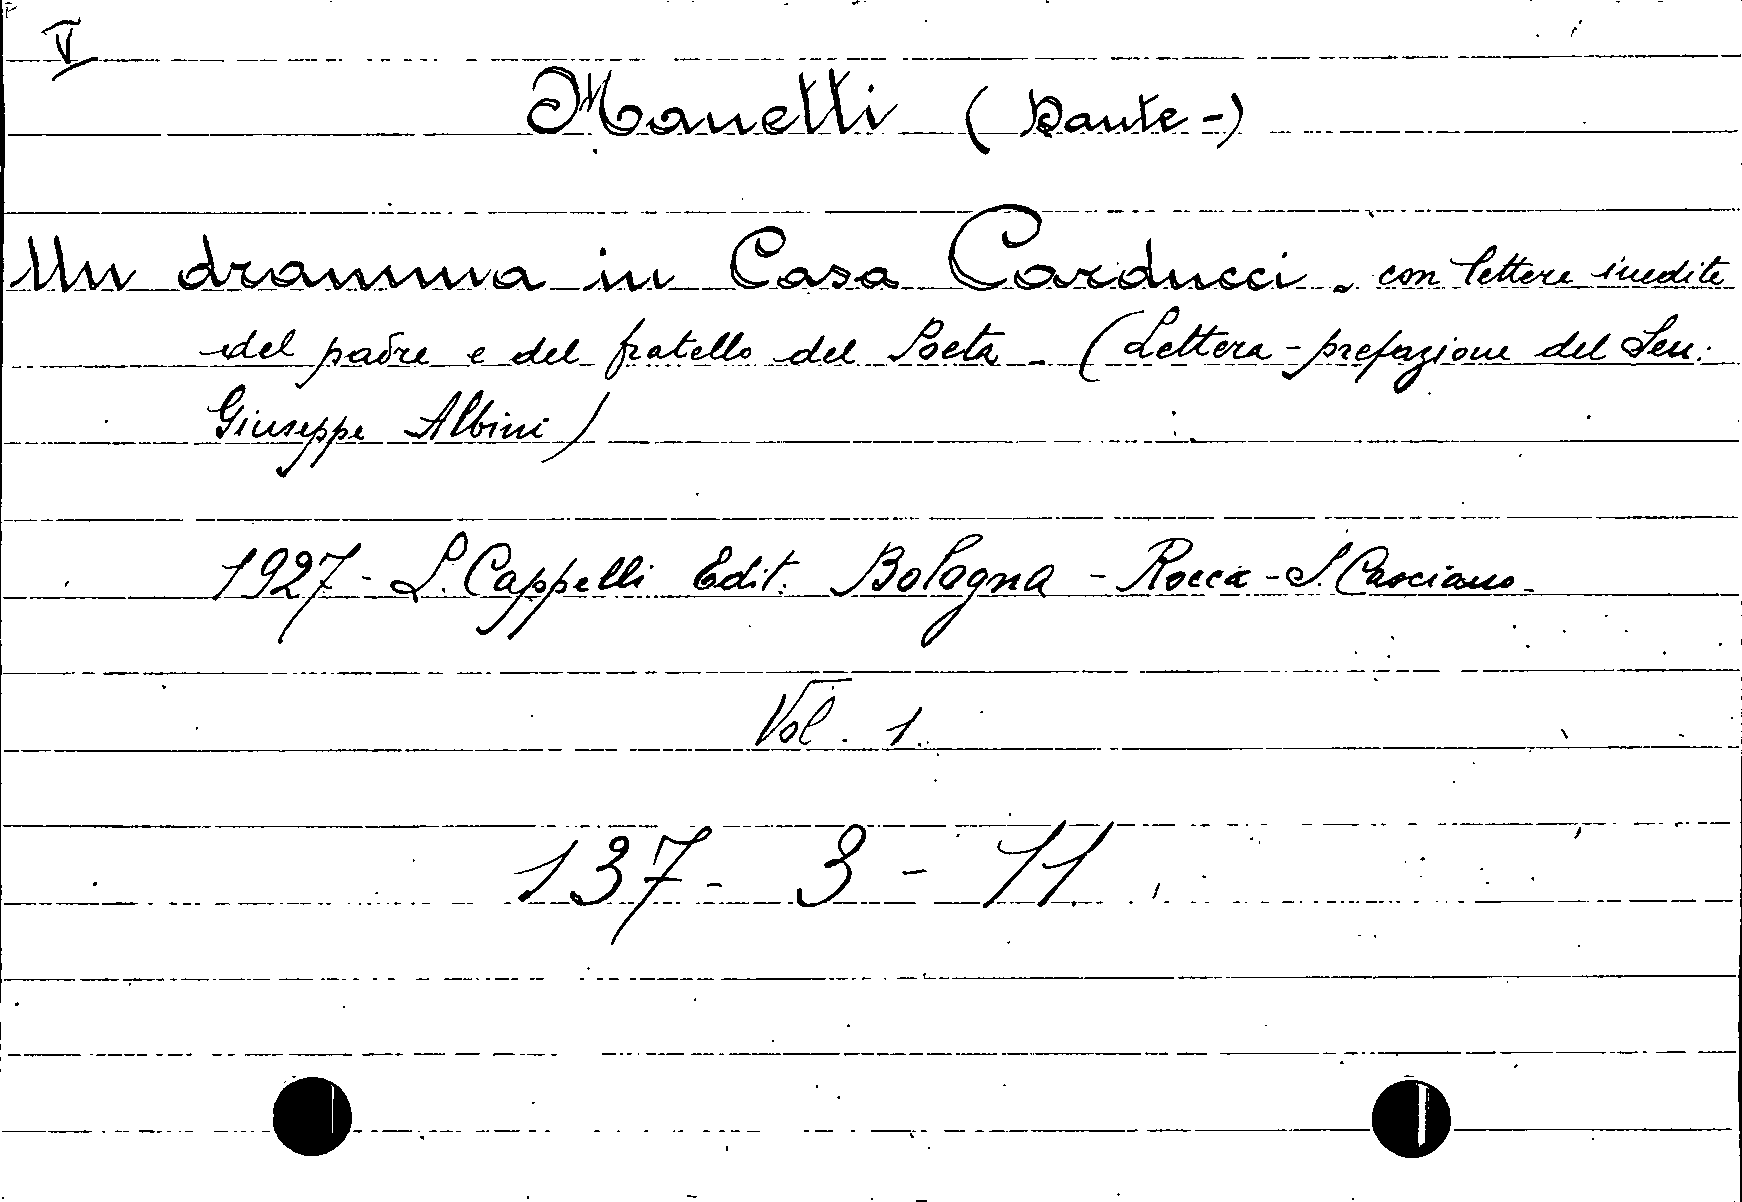 V
Manetti (Dante-)
Un dramma in Casa Carducci - con lettere inedite
del padre e del fratello del Poeta - (Lettera-prefazione del Sen:
Giuseppe Albini)
1927 - L. Cappelli Edit. Bologna - Rocca - S. Casciano -
Vol. 1.
137 - 3 - 11